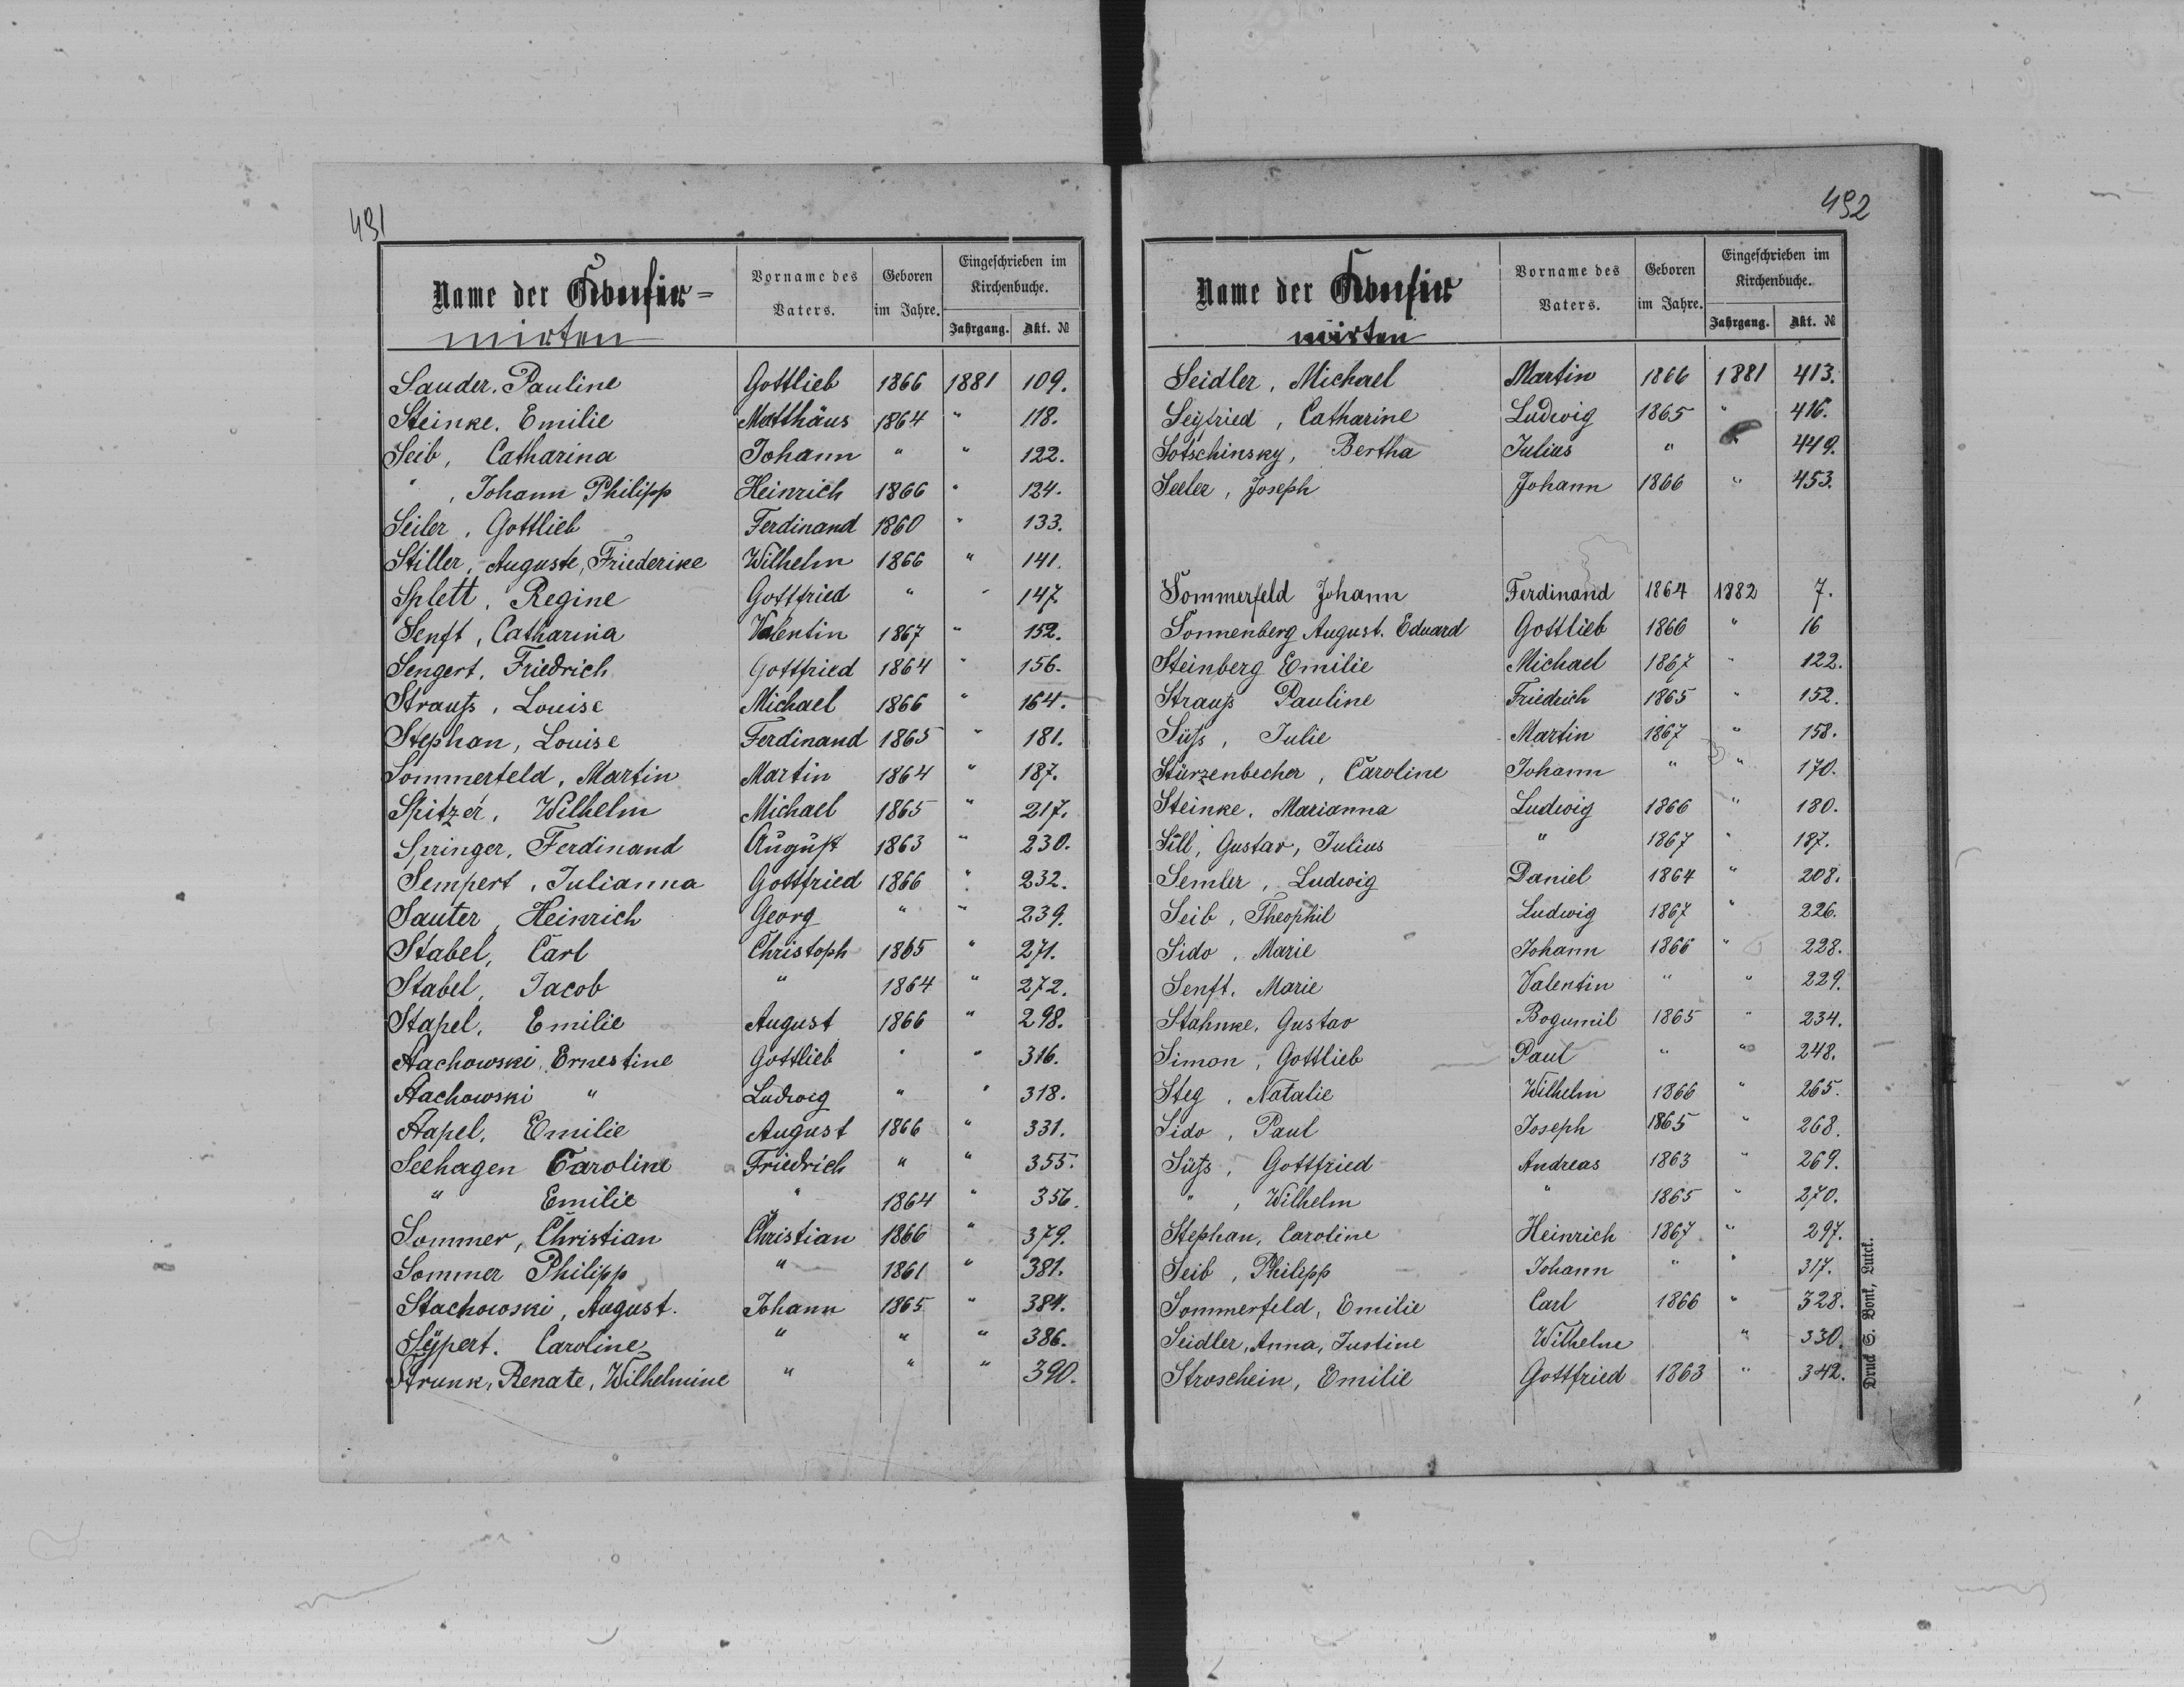 491
Name der Confir=
mirten
Vorname des Vaters.
Geboren im Jahre.
Eingeschrieben im Kirchenbuche.
Jahrgang. Akt. №
Sauder, Pauline Gottlieb 1866 1881 109.
Steinke, Emilie Matthäus 1864 " 118.
Seib, Catharina Johann " " 122.
" , Johann Philipp Heinrich 1866 " 124.
Seiler, Gottlieb Ferdinand 1860 " 133.
Stiller, Auguste, Friederike Wilhelm 1866 " 141.
Splett, Regine Gottfried " " 147
Senft, Catharina Valentin 1867 " 152.
Sengert, Friedrich Gottfried 1864 " 156.
Strauß, Louise Michael 1866 " 164.
Stephan, Louise Ferdinand 1865 " 181.
Sommerfeld, Martin Martin 1864 " 187.
Spitzer, Wilhelm Michael 1865 " 217.
Springer, Ferdinand August 1863 " 230.
Sempert, Julianna Gottfried 1866 " 232.
Sauter, Heinrich Georg " " 239.
Stabel, Carl Christoph 1865 " 271.
Stabel, Jacob " 1864 " 272.
Stapel, Emilie August 1866 " 298.
Stachowski, Ernestine Gottlieb " " 316.
Stachowski " Ludwig " " 318.
Stapel, Emilie August 1866 " 331.
Seehagen Caroline Friedrich " " 355.
" Emilie " 1864 " 356.
Sommer, Christian Christian 1866 " 379.
Sommer Philipp " 1861 " 381.
Stachowski, August. Johann 1865 " 384.
Sÿpert. Caroline " " " 386.
Strunk, Renate, Wilhelmine " " " 390.
492
Name der Confir
mirten
Vorname des Vaters.
Geboren im Jahre.
Eingeschrieben im Kirchenbuche.
Jahrgang. Akt. №
Seidler, Michael Martin 1866 1881 413.
Seigfried, Catharine Ludwig 1865 " 416.
Sotschinsky, Bertha Julius " " 449.
Seeler, Joseph Johann 1866 " 453.
Sommerfeld Johann Ferdinand 1864 1882 7.
Sonnenberg August. Eduard Gottlieb 1866 " 16
Steinberg Emilie Michael 1867 " 122.
Strauß Pauline Friedrich 1865 " 152.
Süß, Julie Martin 1867 " 158.
Stürzenbecher, Caroline Johann " " 170.
Steinke, Marianna Ludwig 1866 " 180.
Sill, Gustav, Julius " 1867 " 187.
Semler, Ludwig Daniel 1864 " 208.
Seib, Theophil Ludwig 1867 " 226.
Sido, Marie Johann 1866 " 228.
Senft, Marie Valentin " " 229.
Stahnke, Gustav Bogumil 1865 " 234.
Simon, Gottlieb Paul " " 248.
Steg, Natalie Wilhelm 1866 " 265.
Sido, Paul Joseph 1865 " 268.
Süß, Gottfried Andreas 1863 " 269.
" , Wilhelm " 1865 " 270.
Stephan, Caroline Heinrich 1867 " 297.
Seib, Philipp Johann " " 317.
Sommerfeld, Emilie Carl 1866 " 328.
Seidler, Anna, Justine Wilhelm " 330.
Stroschein, Emilie Gottfried 1863 " 342.
Druck S. Bonk, Lutck.